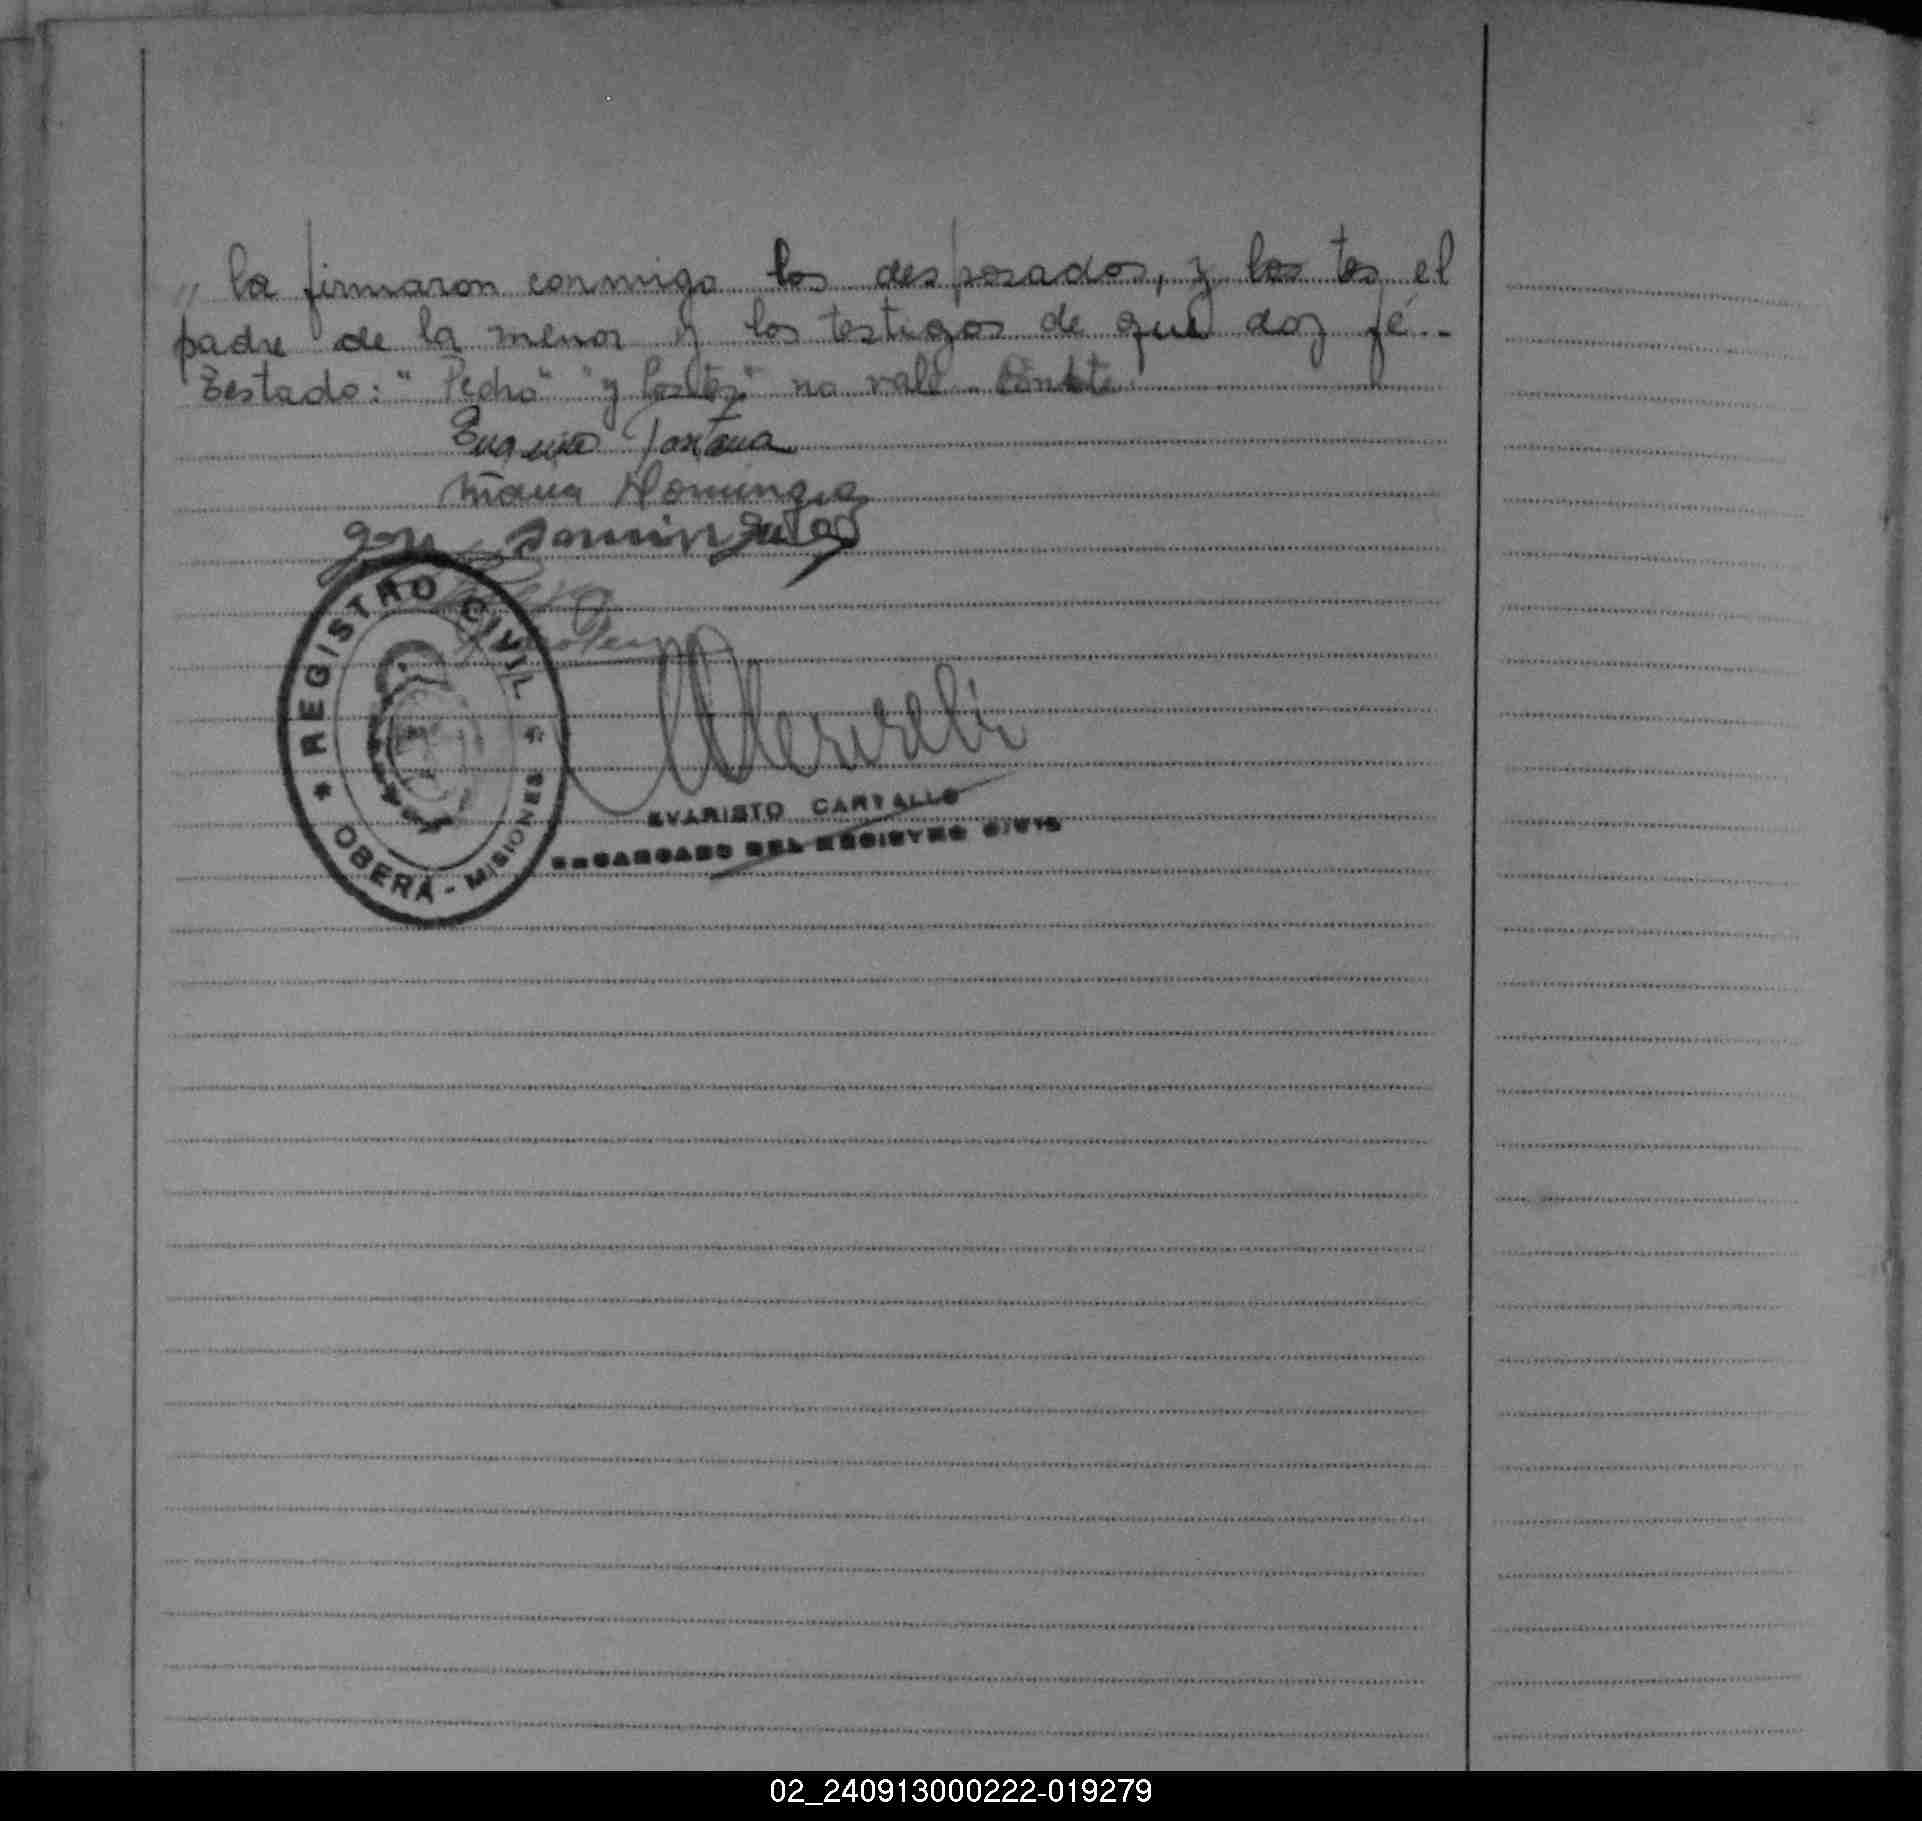 „ la firmaron conmigo los desposados, y los tes el
padre de la menor y los testigos de que doy fé..
Testado: " Pedro" "y los tes" no vale. Conste
Maria Domingue
REGISTRO CIVIL
OBERÁ - MISIONES
EVARISTO CARVALLO
ENCARGADO DEL REGISTRO CIVIL
02_240913000222-019279